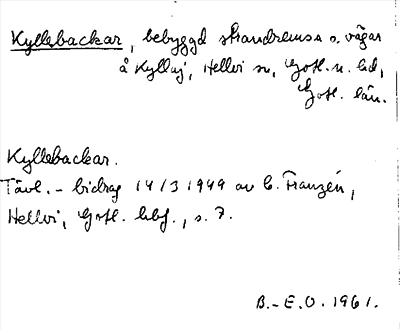 Kyllebackar, bebyggd strandremsa o. vägar
å Kyllaj, Hellvi sn, Gotl. n. hd,
Gotl. län.
Kyllebackar.
Tävl.-bidrag 14/3 1949 av C. Franzén,
Hellvi, Gotl. hbf., s. 7.
B.-E.O. 1961.